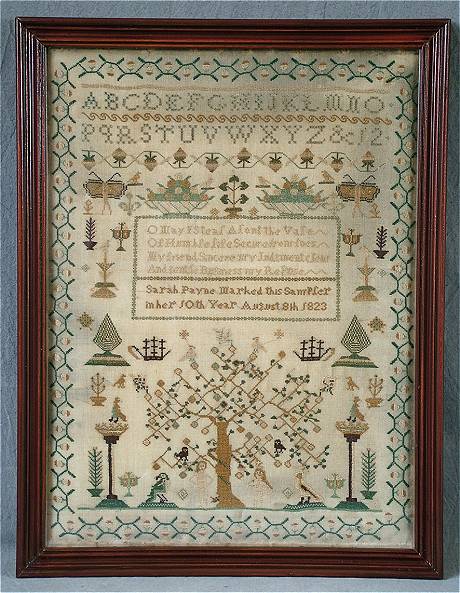 ABCDEFGHIJKLMNO
PQRSTUVWXYZ&12
O May I Steal Along the Vale
Of Humble Life Secure from foes
My friend Sincere my Judgment Clear
And gentle Business my Repose
Sarah Payne Marked this Sampler
in her 10th Year August 8th 1823